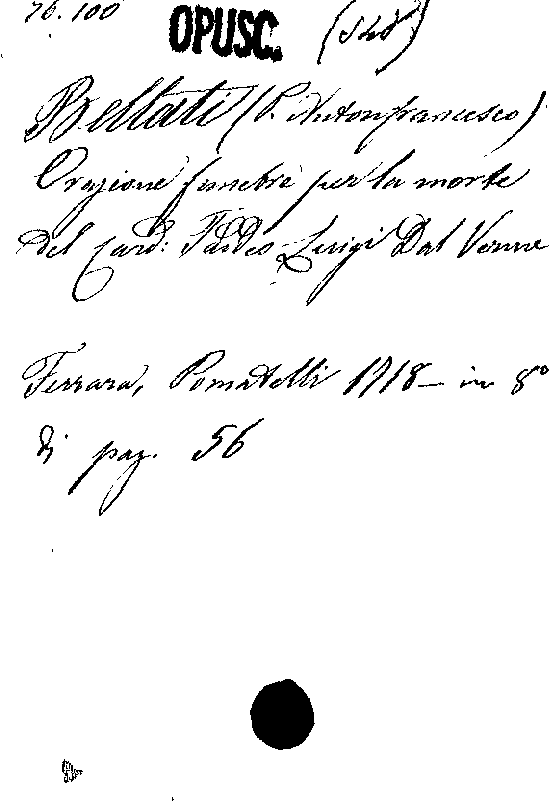 76.100 OPUSC.
Bellati (P. Antonfrancesco)
Orazione funebre per la morte
del Card: Taddeo Luigi Dal Verme
Ferrara, Pomatelli 1718 - in 8°
di pag. 56